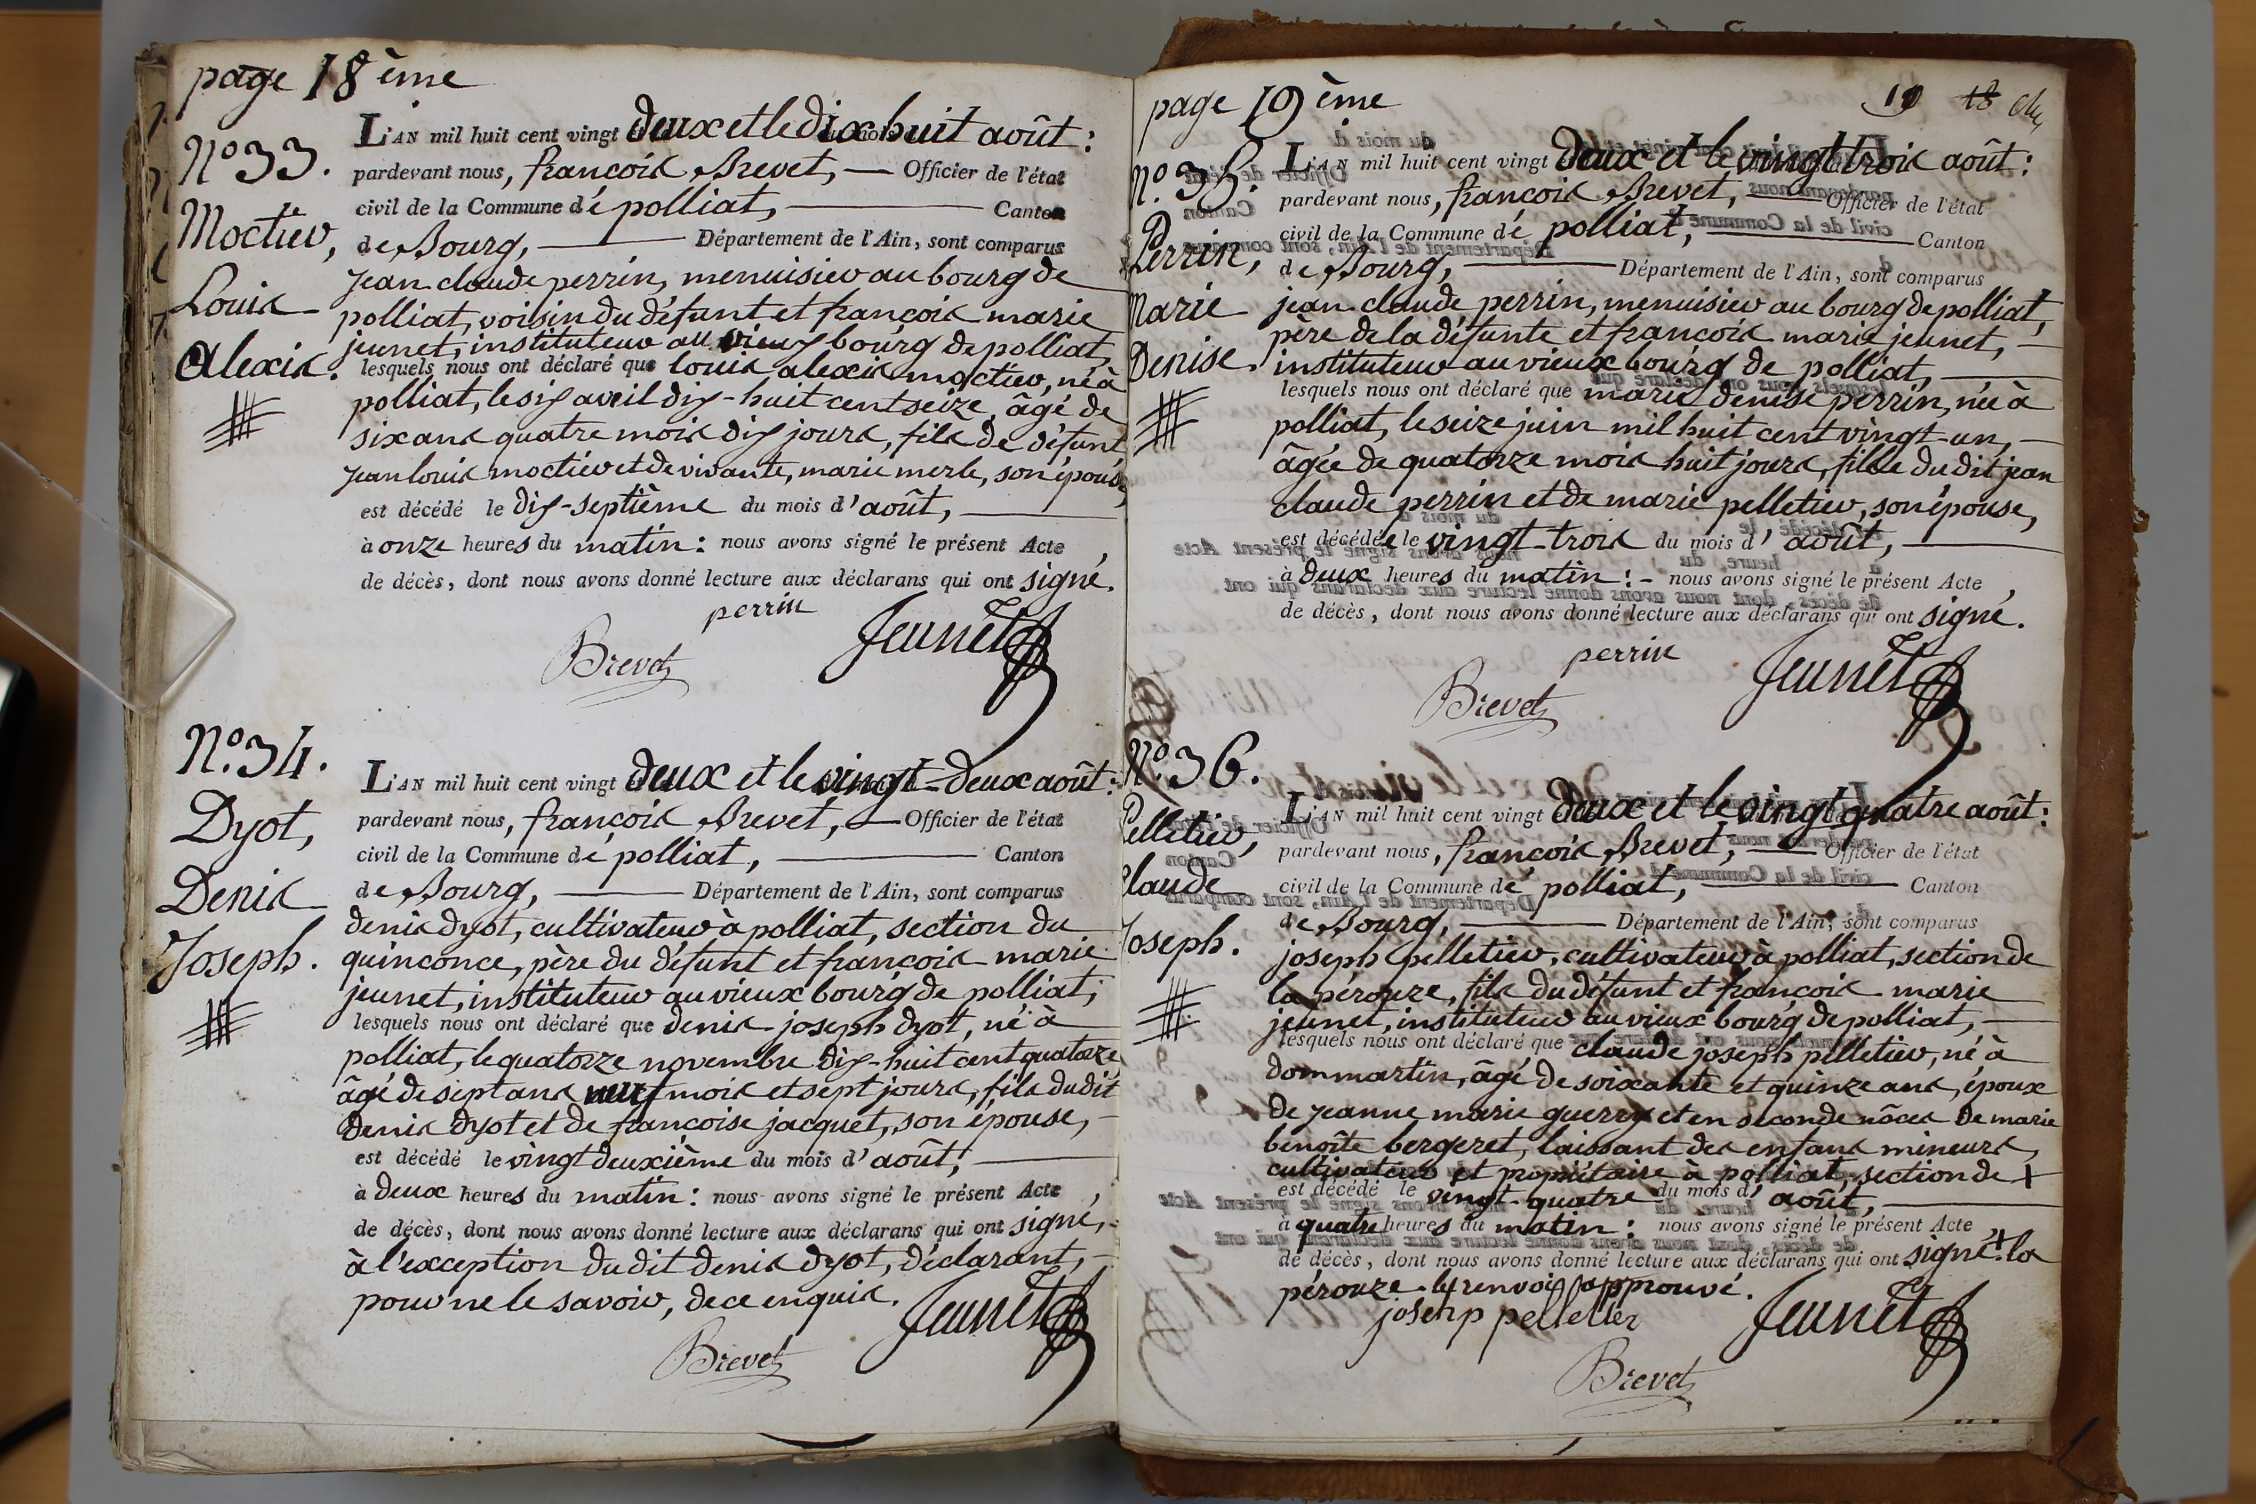 page 18ème
N.o 33.
Moctier,
Louis
Alexis.
L'AN mil huit cent vingt deux et le dix huit août:
pardevant nous, françois Brevet, Officier de l'état
civil de la Commune dé polliat, Canton
de Bourg, Département de l'Ain, sont comparus
jean claude perrin, menuisier au bourg de
polliat, voisin du défunt et françois marie
jeunet, instituteur au vieux bourg de polliat,
lesquels nous ont déclaré que louis alexis moctier, né à
polliat, le six avril dix-huit cent seize, âgé de
six ans quatre mois dix jours, fils de défunt
jean louis moctier et de vivante, marie merle, son épouse,
est décédé le dix-septième du mois d'août,
à onze heures du matin: nous avons signé le présent Acte,
de décès, dont nous avons donné lecture aux déclarans qui ont signé.
perrin
Jeunet
Brevet
N.o 34.
Dyot,
Denis
Joseph.
L'AN mil huit cent vingt deux et le vingt-deux août:
pardevant nous, françois Brevet, Officier de l'état
civil de la Commune dé polliat, Canton
de Bourg, Département de l'Ain, sont comparus
denis dyot, cultivateur à polliat, section du
quinconce, père du défunt et françois marie
jeunet, instituteur au vieux bourg de polliat,
lesquels nous ont déclaré que denis joseph dyot, né à
polliat, le quatorze novembre dix-huit cent quatorze
âgé de sept ans neuf mois et sept jours, fils du dit
denis dyot et de francoise jacquet, son épouse,
est décédé le vingt deuxième du mois d'août,
à deux heures du matin: nous avons signé le présent Acte,
de décès, dont nous avons donné lecture aux déclarans qui ont signé,
à l'exception du dit denis dyot, déclarant,
pour ne le savoir, de ce enquis.
Jeunet
Brevet
page 19ème
19 18
N.o 35.
Perrin,
Marie
Denise.
L'AN mil huit cent vingt deux et le vingt trois août:
pardevant nous, françois Brevet, Officier de l'état
civil de la Commune dé polliat, Canton
de Bourg, Département de l'Ain, sont comparus
jean claude perrin, menuisier au bourg de polliat,
père de la défunte et françois marie jeunet,
instituteur au vieux bourg de polliat,
lesquels nous ont déclaré que marie denise perrin, née à
polliat, le seize juin mil huit cent vingt-un,
âgée de quatorze mois huit jours, fille du dit jean
claude perrin et de marie pelletier, son épouse,
est décédée le vingt-trois du mois d'août,
à deux heures du matin: nous avons signé le présent Acte,
de décès, dont nous avons donné lecture aux déclarans qui ont signé.
perrin
Jeunet
Brevet
N.o 36.
Pelletier,
Claude
Joseph.
L'AN mil huit cent vingt deux et le vingt quatre août:
pardevant nous, françois Brevet, Officier de l'état
civil de la Commune dé polliat, Canton
de Bourg, Département de l'Ain, sont comparus
joseph pelletier, cultivateur à polliat, section de
la pérouze, fils du défunt et françois marie
jeunet, instituteur au vieux bourg de polliat,
lesquels nous ont déclaré que claude joseph pelletier, né à
dommartin, âgé de soixante et quinze ans, époux
de jeanne marie guerry et en seconde nôces de marie
benoîte bergeret, laissant des enfans mineurs,
cultivateur et propriétaire à polliat, section de +
est décédé le vingt-quatre du mois d'août,
à quatre heures du matin: nous avons signé le présent Acte
de décès, dont nous avons donné lecture aux déclarans qui ont signé. + la
pérouze. le renvoi approuvé.
josehp pelletier
Jeunet
Brevet